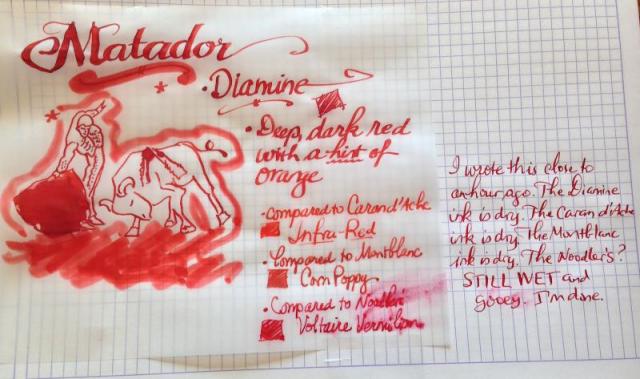 Matador
· Diamine
· Deep, dark red
with a hint of
orange
· compared to Caran d'Ache
Infra-Red
· Compared to Montblanc
Corn Poppy
· Compared to Noodlers
Voltaire Vermilion
I wrote this close to
an hour ago. The Diamine
ink is dry. The Caran d'Ache
ink is dry. The Montblanc
ink is dry. The Noodler's?
STILL WET and
gooey. I'm done.